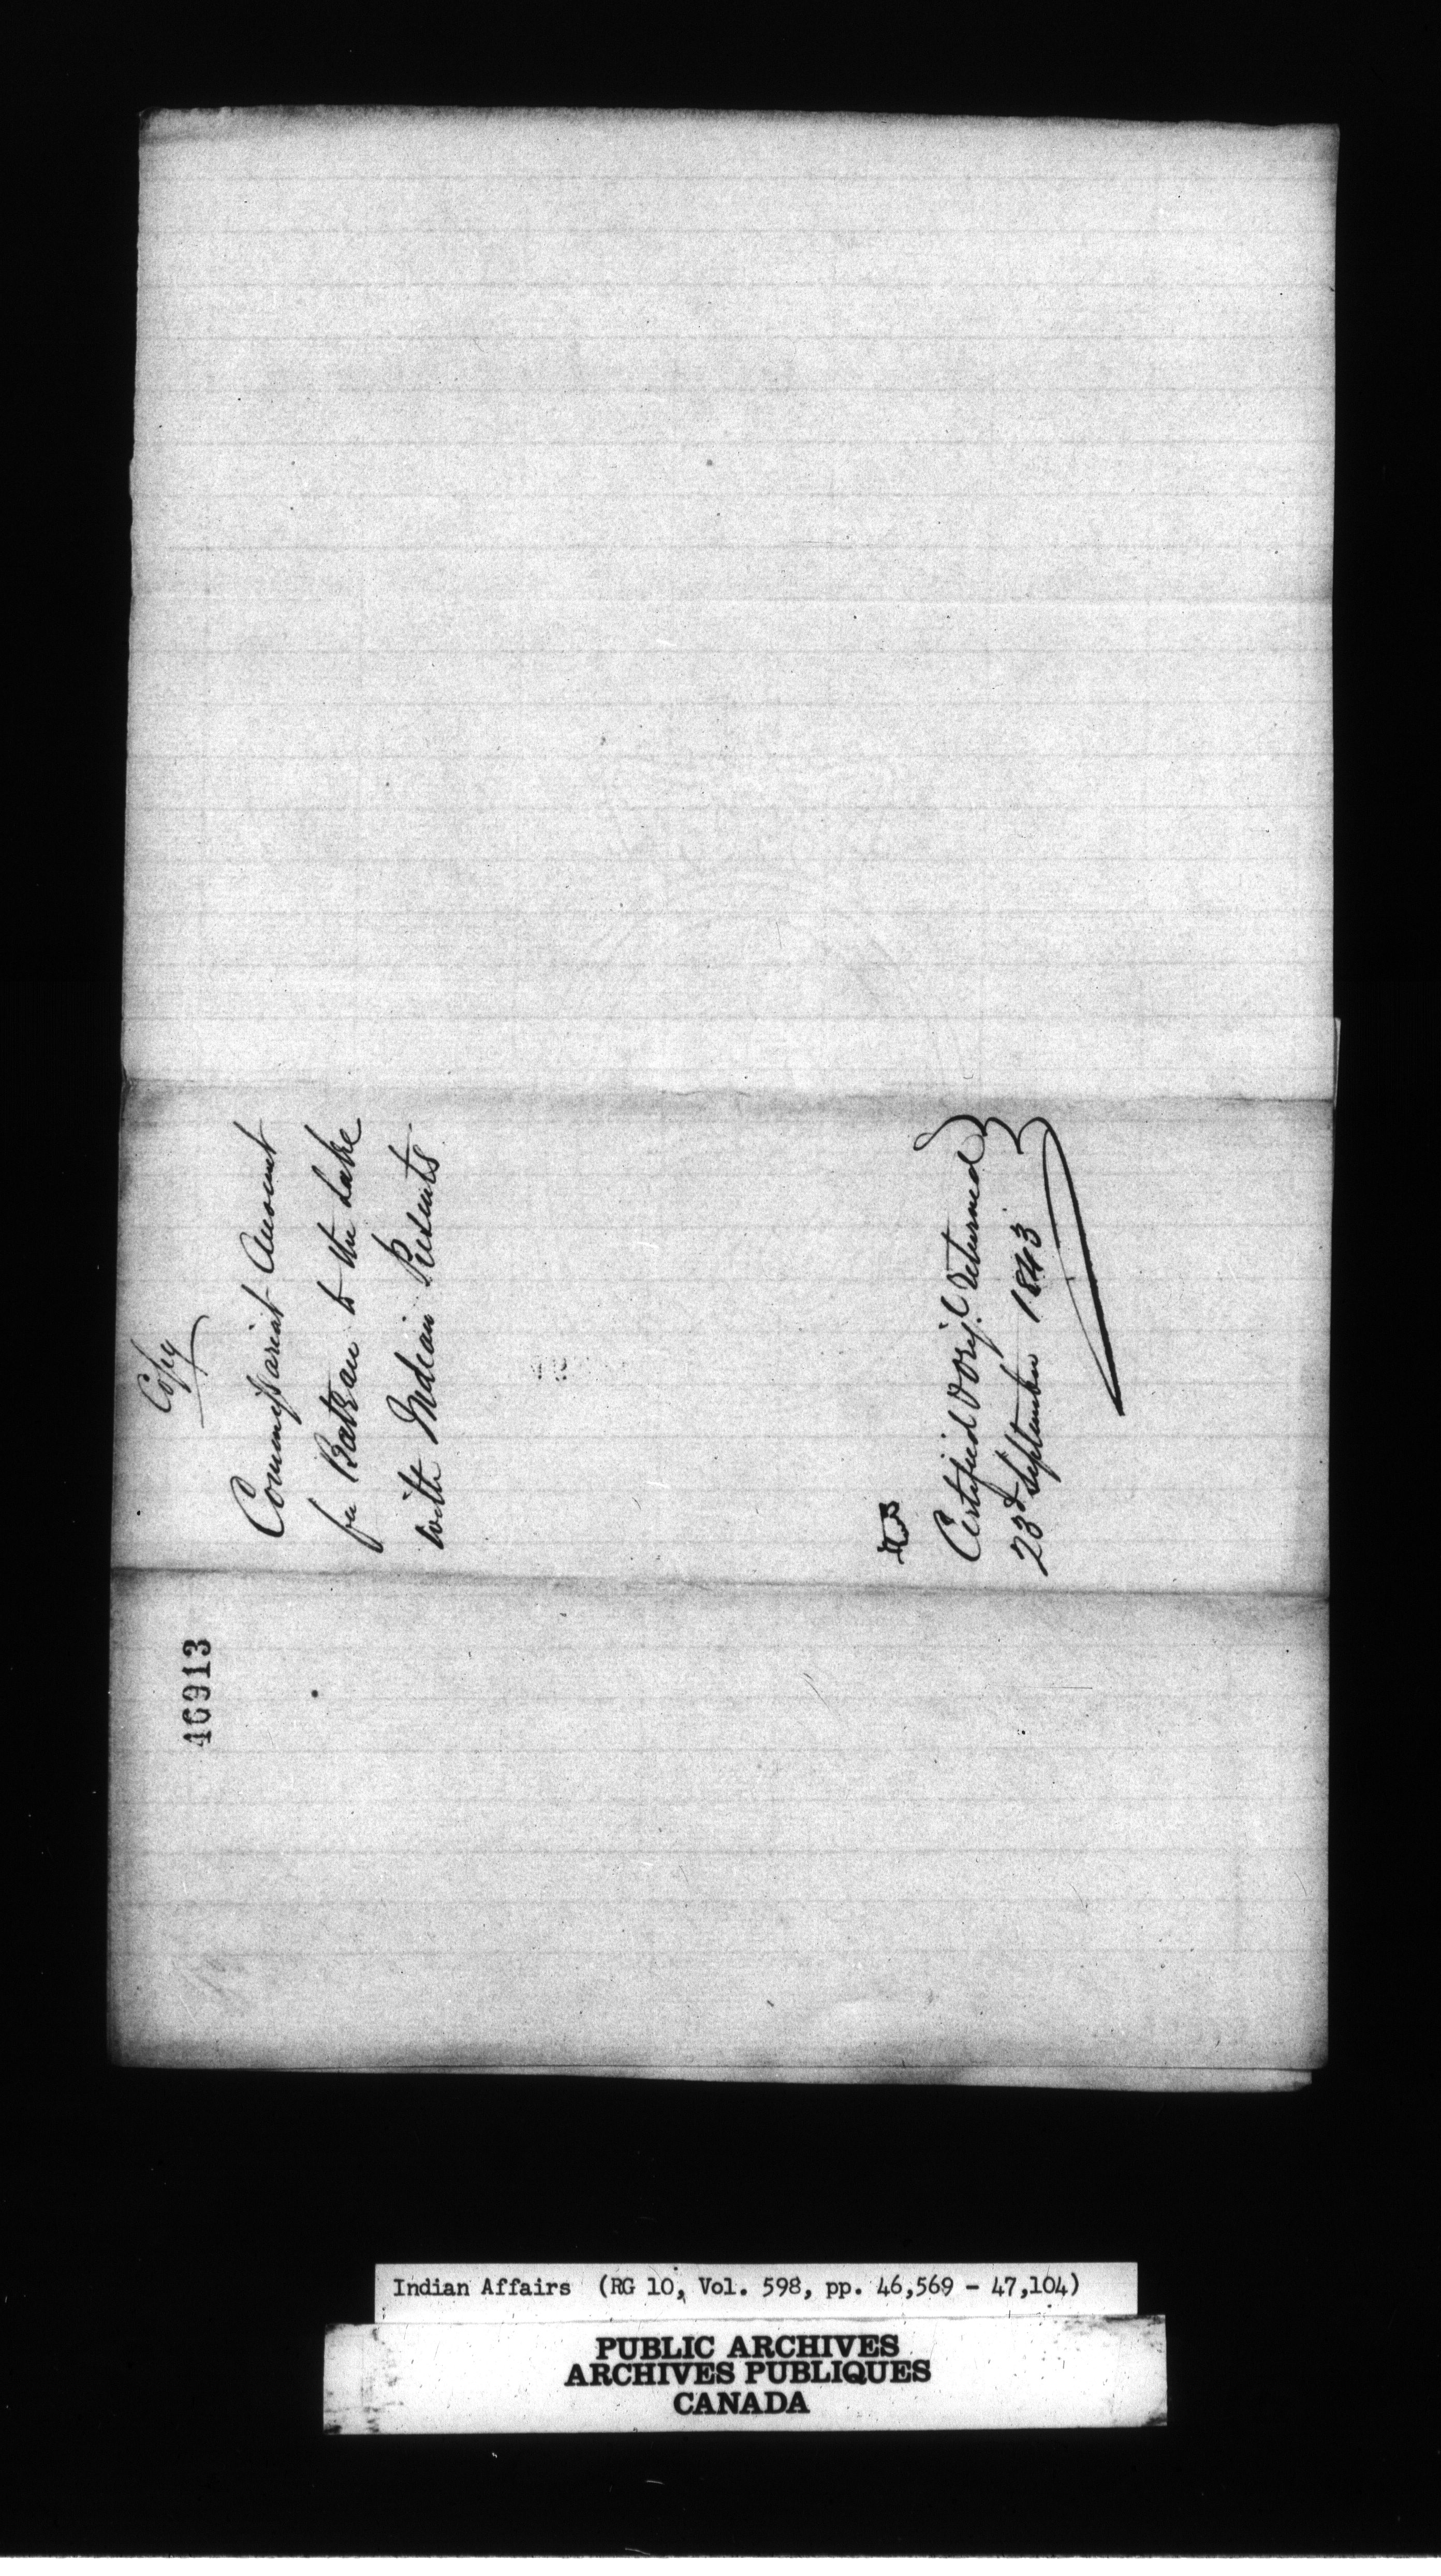 Copy
Commissariat Account
for Bateau to the Lake
with Indian Presents
Certified & Orig.l returned
23d September 1843
46913
Indian Affairs (RG 10, Vol. 598, pp. 46,569 - 47,104)
PUBLIC ARCHIVES
ARCHIVES PUBLIQUES
CANADA